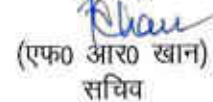 Khan
(एफ0 आर0 खान)
सचिव